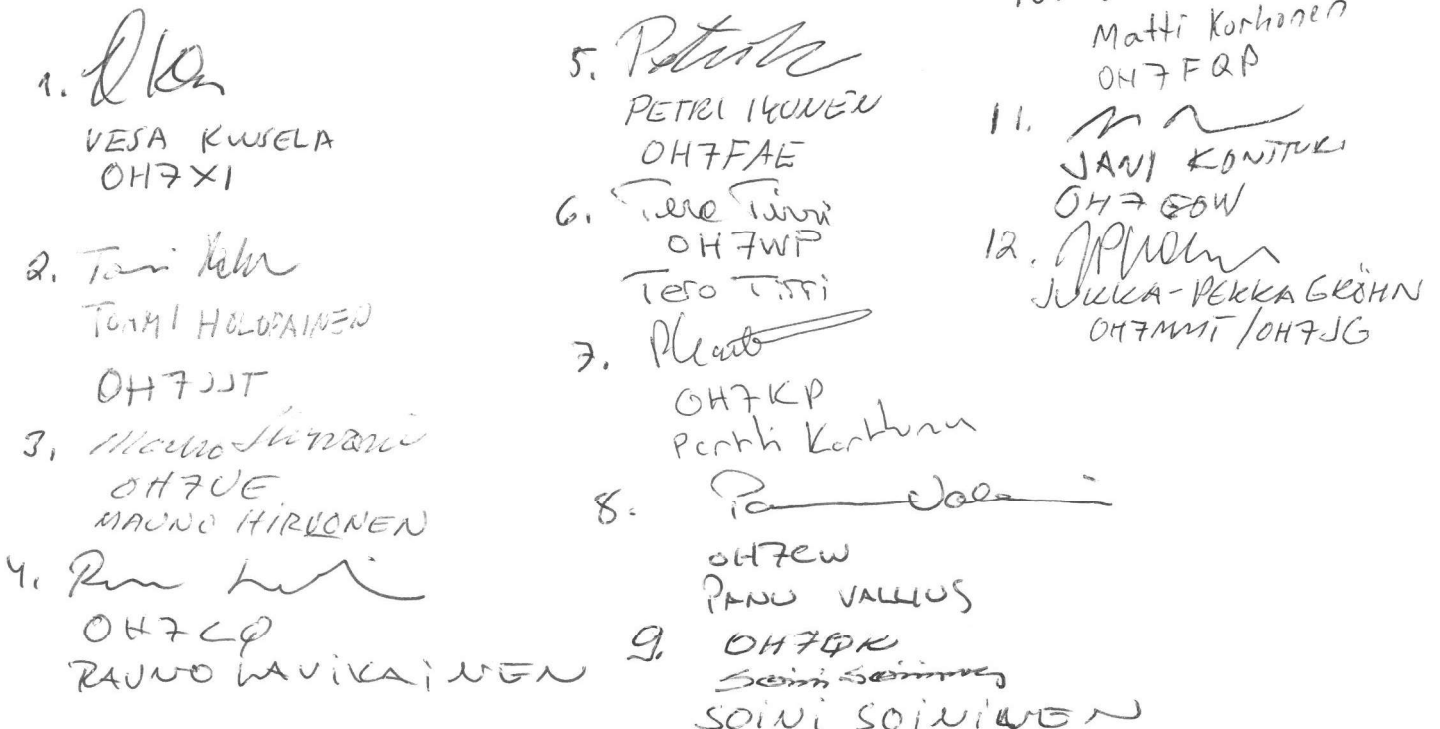 1.
VESA KUUSELA
OH7XI
2.
TOMMI HOLOPAINEN
OH7JJT
3.
OH7UE
MAUNO HIRVONEN
4.
OH7LQ
RAUNO LAVIKAINEN
5.
PETRI IKONEN
OH7FAE
6. Tero Tirri
OH7WP
Tero Tirri
7.
OH7KP
Pertti Karttunen
8.
OH7CW
PANU VALLIUS
9. OH7QK
Soini Soininen
SOINI SOININEN
Matti Korhonen
OH7FQP
11.
JANI KONTTURI
OH7GOW
12.
JUKKA-PEKKA GRÖHN
OH7MMT/OH7JG